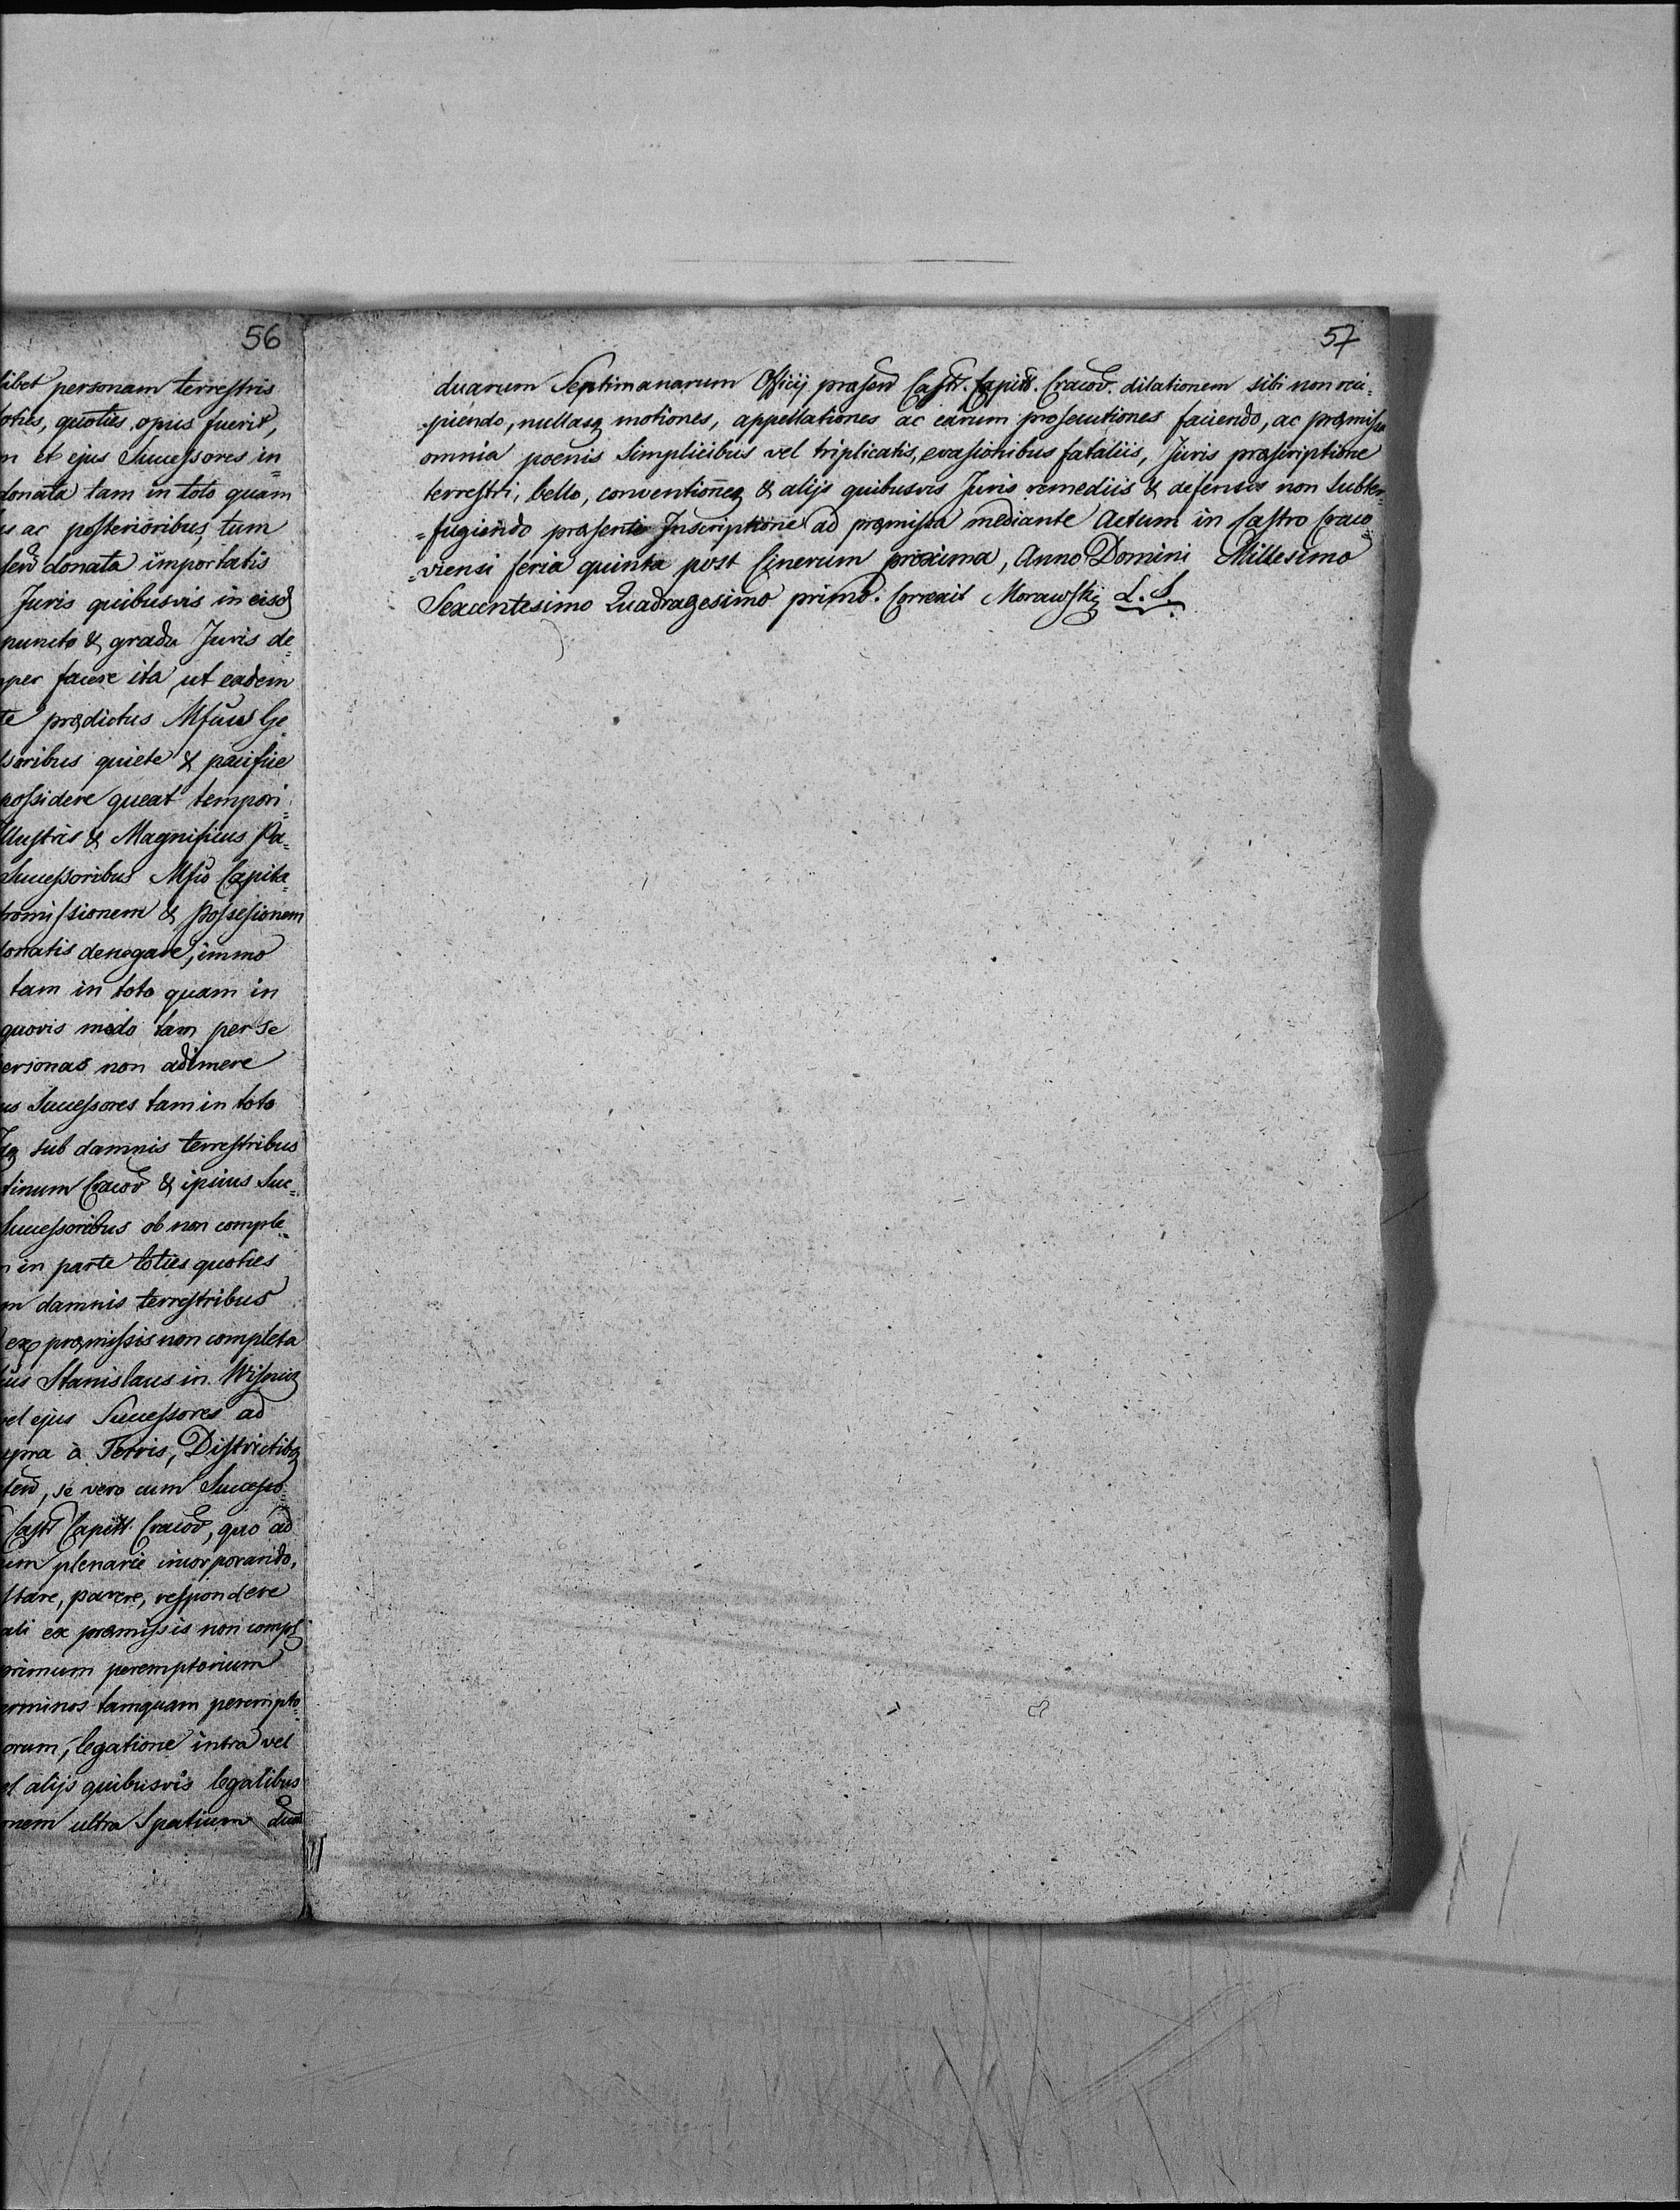 56
libet personam terrestris
oties, quoties opus fuerit,
m et ejus Successores in=
donata tam in toto quam
s ac posterioribus, tum
donata importatis
Juris quibusvis in eisd
puncto & gradu Juris de=
per facere ita, ut eadem
te prædictus Mfcus Ge=
soribus quiete & pacifice
possidere queat tempori=
llustris & Magnificus Pa=
Successoribus Mfco Capita=
romissionem & possesionem
donatis denegare, immo
tam in toto quam in
quovis modo tam per se
ersonas non adimere
us Successores tam in toto
sub damnis terrestribus
tinum Cracov & ipsius Suc=
Successoribus ob non comple=
in parte toties quoties
m damnis terrestribus
ex præmissis non completa
ius Stanislaus in Wisnicz
vel ejus Successores ad
upra à Terris, Districtibq
ten, se vero cum Successo
Castr Capitt Cracov, quo ad
um plenarie incorporando,
stare, parere, respondere
ali ex præmissis non compl
primum peremptorium
erminos tamquam perempto=
orum, legatione intra vel
el alijs quibusvis legalibus
nem ultra Spatium dua
57
duarum Septimanarum Officij præsen Castr. Capitt. Cracov. dilationem sibi non reci=
=piendo, nullasq motiones, appellationes ac earum prosecutiones faciendo, ac præmissa
omnia poenis simplicibus vel triplicatis, evasionibus fataliis, Juris præscriptione
terrestri, bello, conventioneq & alijs quibusvis Juris remediis & defensis non subter=
=fugiendo præsenti Inscriptione ad præmissa mediante Actum in Castro Craco=
=viensi feria quinta post Cinerum proxima, Anno Domini Millesimo
Sexcentesimo Quadragesimo primo. Correxit Morawski L. S.